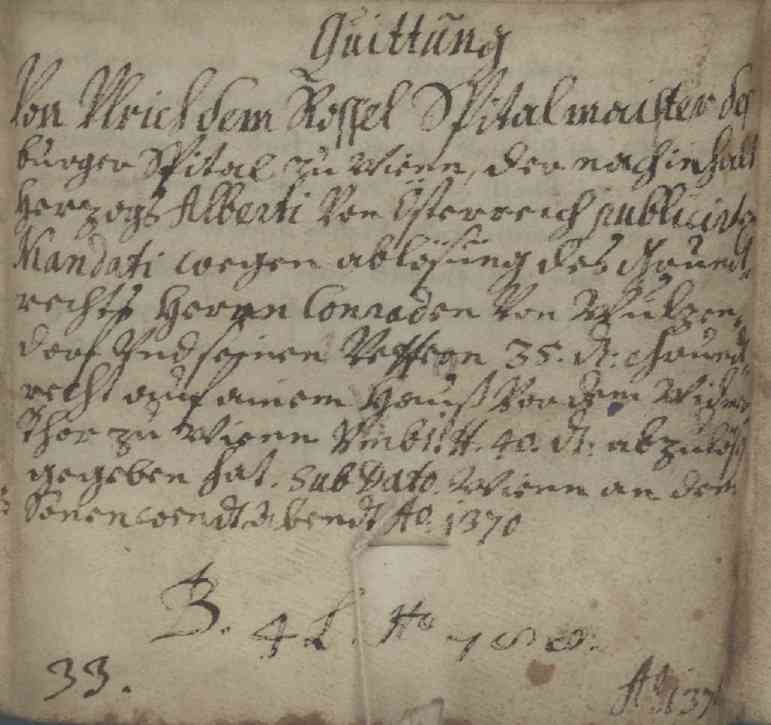 Quittung
Von Ulrich dem Rossel Spitalmaister des
burger Spital zu Wienn, der nach inhalt
Herzogs Alberti Von Österreich publicirte
Mandati wegen ablösung des
rechts Herrn Conraden Von Wulzen,
dorf Und seinen Vettern 35. dt:
recht auf ainem Hauß Vor dem
thor zu Wienn Umb 40. dt: abzulöß
gegeben hat. Sub Dato. Wienn an dem
Sonenwendt Abendt Ao. 1370
B. 4
33.
Ao 137